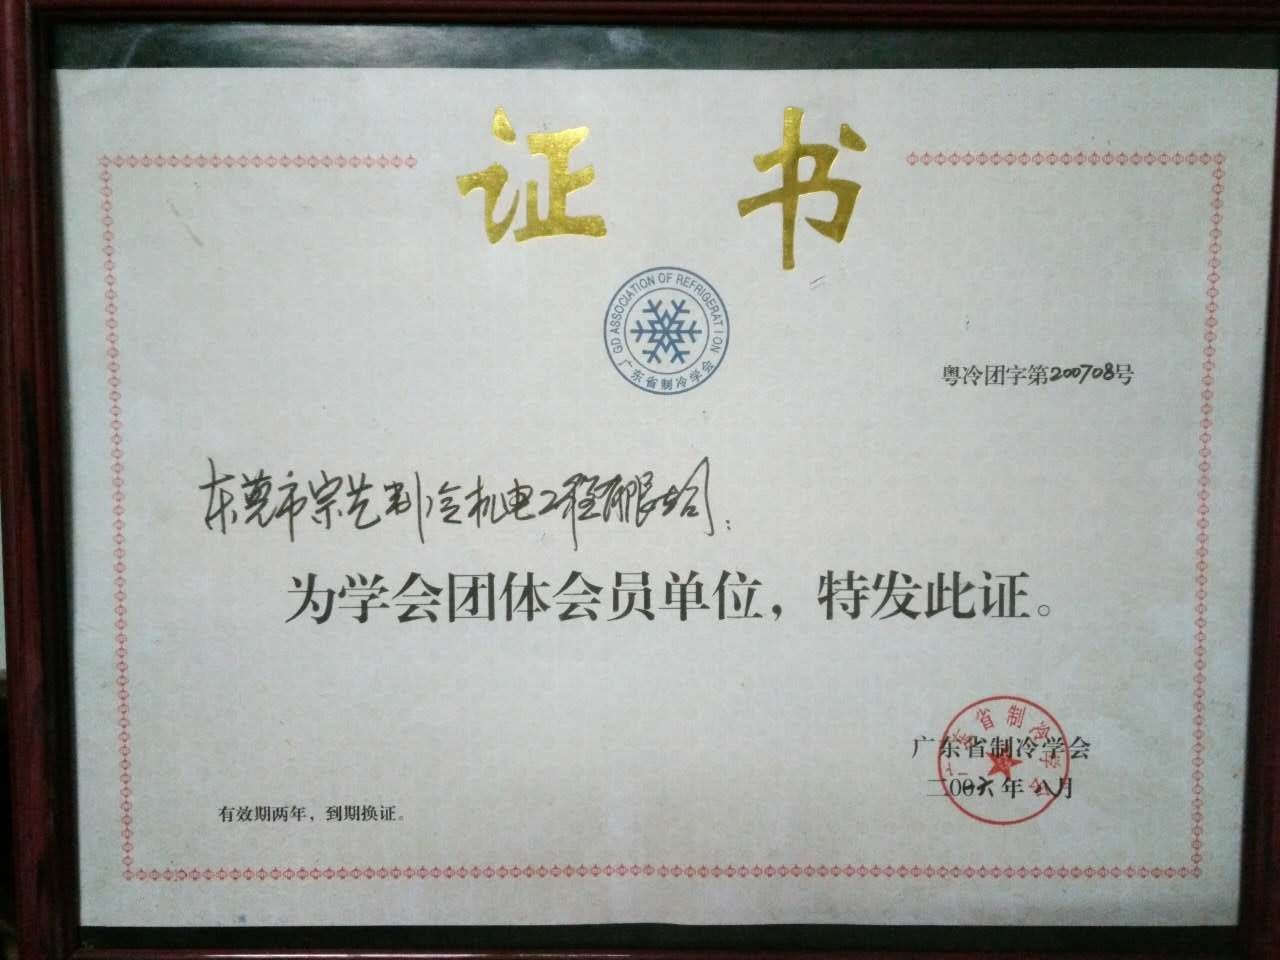 证书
GD ASSOCIATION OF REFRIGERATION
广东省制冷学会
粤冷团字第200708号
东莞市宗艺制冷机电工程有限公司:
为学会团体会员单位，特发此证。
广东省制冷学会
广东省制冷学会
年八月
有效期两年，到期换证。